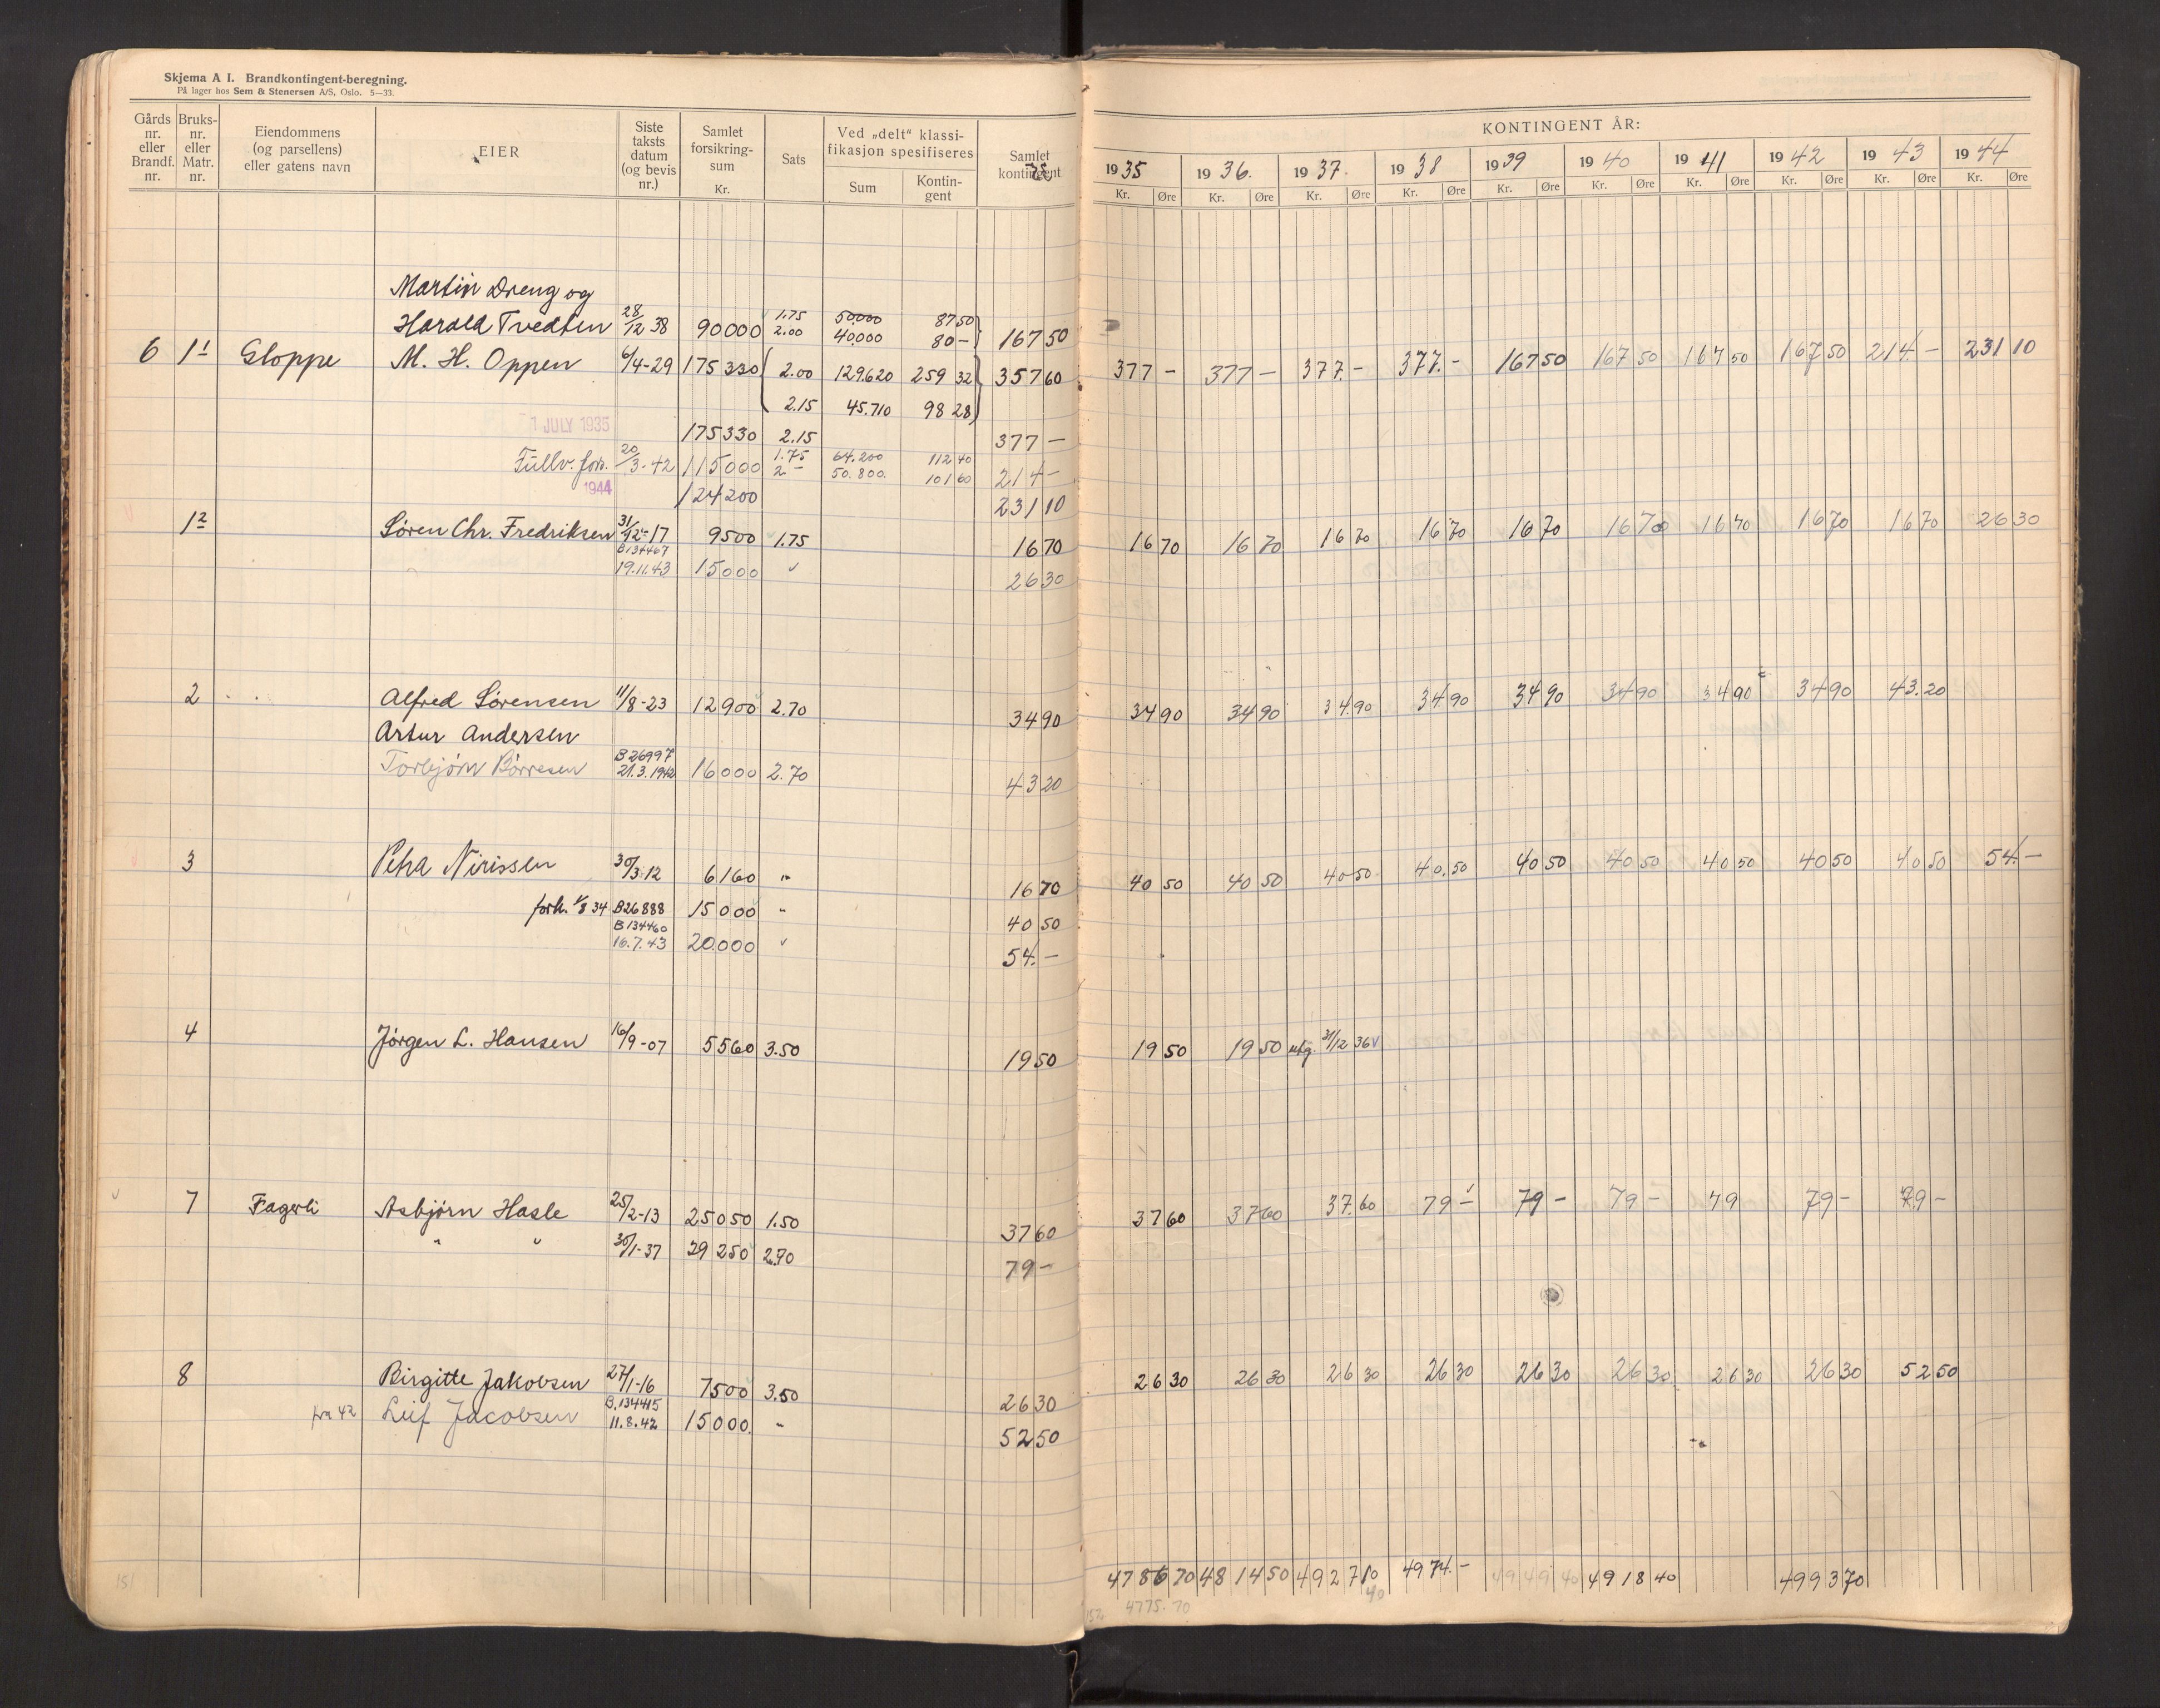 Skjema A I. Brandkontingent-beregning.
På lager hos Sem & Stenersen A/S, Oslo. 5—33.
Gårds nr. eller Brandf. nr. Bruks- nr. eller Matr. nr. Eiendommens (og parsellens) eller gatens navn EIER Siste taksts datum (og bevis nr.) Samlet forsikring- sum Kr. Sats Ved „delt" klassi- fikasjon spesifiseres Sum Kontin- gent Samlet kontingent 35
KONTINGENT ÅR:
1935 1936. 1937. 1938 1939 1940 1941 1942 1943 1944
Kr. Øre Kr. Øre Kr. Øre Kr. Øre Kr. Øre Kr. Øre Kr. Øre Kr. Øre Kr. Øre Kr. Øre
Martin Dreng og
Harald Tvedten 28/12 38 90000 1.75 50000 87 50
2.00 40000 80 — 167 50
6 1¹ Gloppe M. H. Oppen 6/4-29 175330 2.00 129.620 259 32 357 60 377 — 377 — 377.— 377.— 167 50 167 50 167 50 167 50 214.— 231 10
2.15 45.710 98 28
1 JULY 1935 175330 2.15 377 —
Fullv. for. 20/3-42 115000 1.75 64.200 112 40
2 — 50.800. 101 60 214 —
1944 124200 231 10
1² Søren Chr. Fredriksen 31/12-17 9500 1.75 16 70 16 70 16 70 16 70 16 70 16 70 16 70 16 70 16 70 16 70 26 30
B134467
" 19.11.43 15000 " 26 30
2 " " Alfred Sørensen 11/8-23 12900 2.70 34 90 34 90 34 90 34.90 34.90 34 90 34 90 34 90 34 90 43.20
Artur Andersen
Torbjørn Børresen B26997 21.3.1942 16000 2.70 43 20
3 Petra Nirissen 30/3-12 6160 " 16 70 40 50 40 50 40 50 40.50 40 50 40 50 40 50 40 50 40 50 54.—
forh. 1/8 34 B26888 15000 " 40 50
B134460
16.7.43 20.000 " 54.—
4 Jørgen L. Hansen 16/9-07 5560 3.50 19 50 19 50 19 50 utg. 31/12 36
7 Fagerli Asbjørn Hasle 25/2-13 25050 1.50 37 60 37 60 37 60 37.60 79 — 79 — 79 — 79 79 — 79 —
" " 30/1-37 29250 2.70 79 —
8 Birgitte Jakobsen 27/1-16 7500 3.50 26 30 26 30 26 30 26 30 26 30 26 30 26 30 26 30 26 30 52 50
fra 42 Leif Jacobsen B.134415 11.8.42 15000. " 52 50
4786 70 4814 50 4927 10 4974.— 4949 40 4918 40 4993 70
40
151
152 4775.70